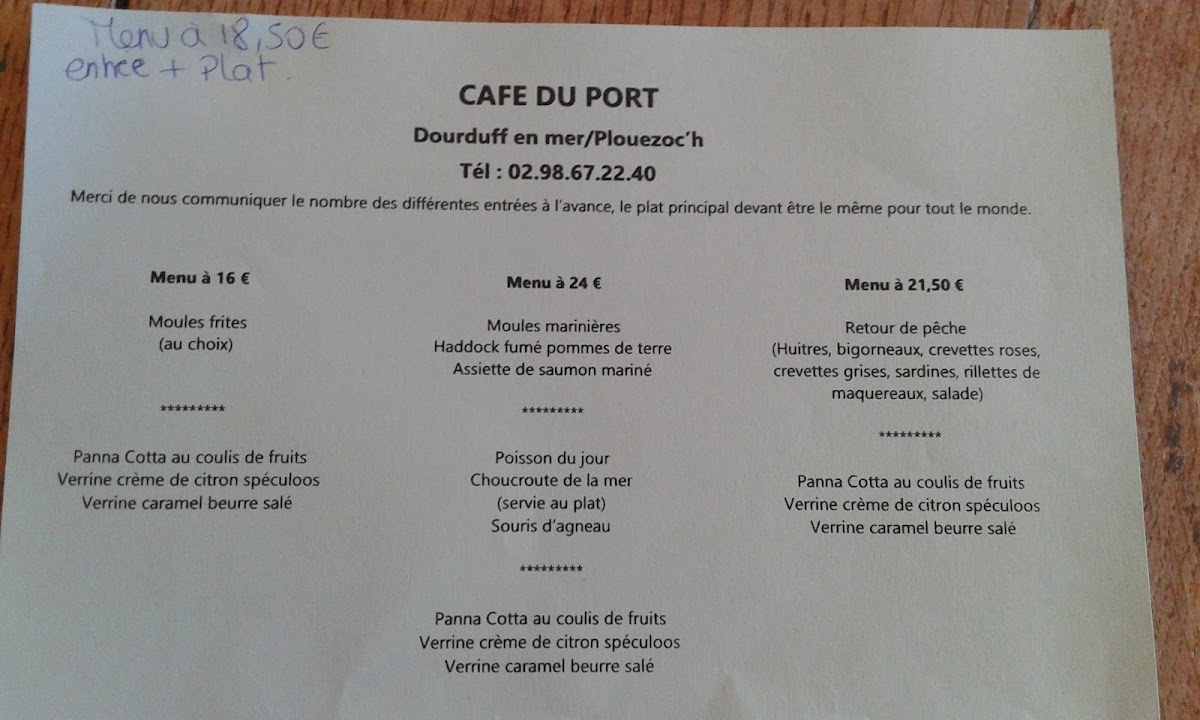 Menu à 18,50€
entrée + Plat.
CAFE DU PORT
Dourduff en mer/Plouezoc'h
Tél : 02.98.67.22.40
Merci de nous communiquer le nombre des différentes entrées à l'avance, le plat principal devant être le même pour tout le monde.
Menu à 16 €
Moules frites
(au choix)
*********
Panna Cotta au coulis de fruits
Verrine crème de citron spéculoos
Verrine caramel beurre salé
Menu à 24 €
Moules marinières
Haddock fumé pommes de terre
Assiette de saumon mariné
*********
Poisson du jour
Choucroute de la mer
(servie au plat)
Souris d'agneau
*********
Panna Cotta au coulis de fruits
Verrine crème de citron spéculoos
Verrine caramel beurre salé
Menu à 21,50 €
Retour de pêche
(Huitres, bigorneaux, crevettes roses,
crevettes grises, sardines, rillettes de
maquereaux, salade)
*********
Panna Cotta au coulis de fruits
Verrine crème de citron spéculoos
Verrine caramel beurre salé